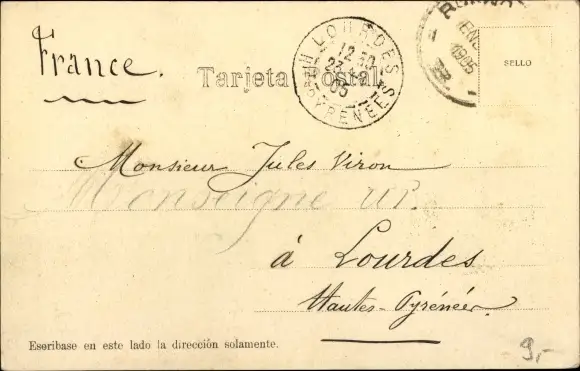 France.
Tarjeta Postal
LOURDES
12
23
05
Htes PYRENEES
ENE
1905
SELLO
Monsieur Jules Viron
à Lourdes
Hautes-Pyrénées.
Escribase en este lado la dirección solamente.
9,-